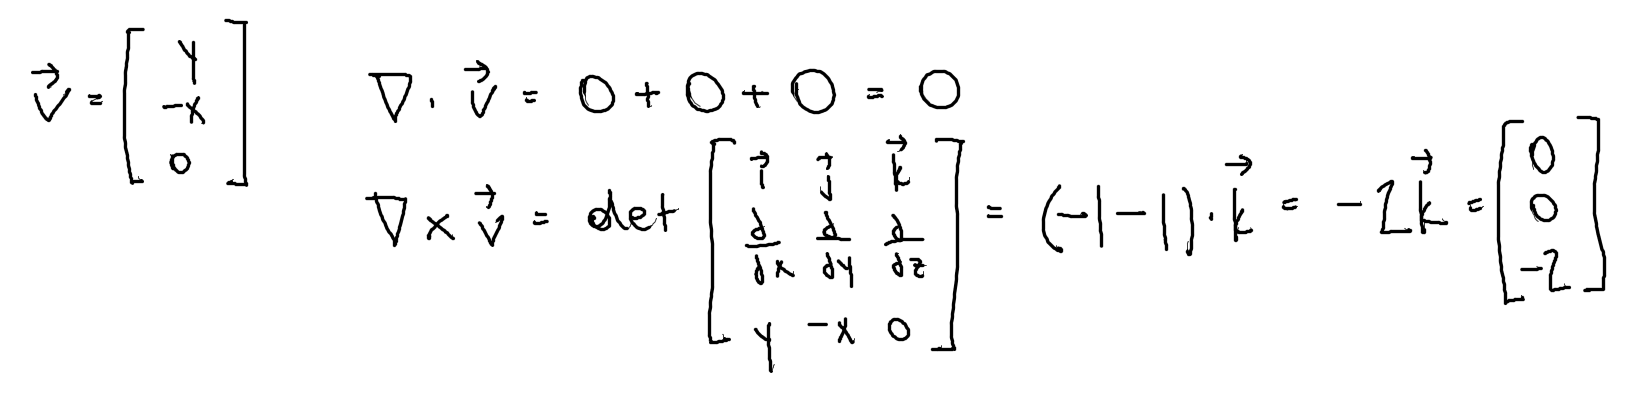 v⃗ = [ y -x 0 ]
∇ · v⃗ = 0 + 0 + 0 = 0
∇ × v⃗ = det [ i⃗ j⃗ k⃗ d/dx d/dy d/dz y -x 0 ] = (-1-1)·k⃗ = -2k⃗ = [ 0 0 -2 ]